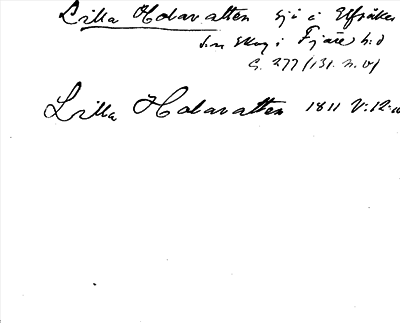 Lilla Holavatten sjö i Elfsåker
sn skog i Fjäre h:d
G. 277 (131. N. V)
Lilla Holavatten 1811 V:12: